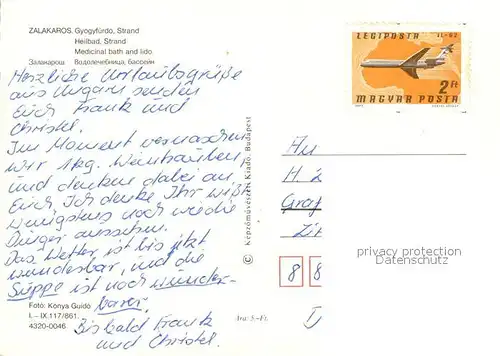 ZALAKAROS. Gyógyfürdo, Strand
Heilbad, Strand
Medicinal bath and lido
Залакарош Водолечебница, бассейн
Herzliche Urlaubsgrüße
aus Ungarn senden
Euch Frank und
Christel.
Im Moment vernaschen
wir 1kg. Weintrauben
und denken dabei an
Euch. Ich denke Ihr wißt
wenigstens noch wie die
Dinger aussehen.
Das Wetter ist bis jetzt
wunderbar, und die
Suppe ist noch wunder-
barer.
Bis bald Frank
und Christel.
Fotó: Kónya Guidó
I.–IX.117/861.
4320-0046
Ára: 5.-Ft.
© Képzőművészeti Kiadó, Budapest
LÉGIPOSTA IL-62
2Ft
MAGYAR POSTA
An
H.
Graf
privacy protection
Datenschutz
8 8